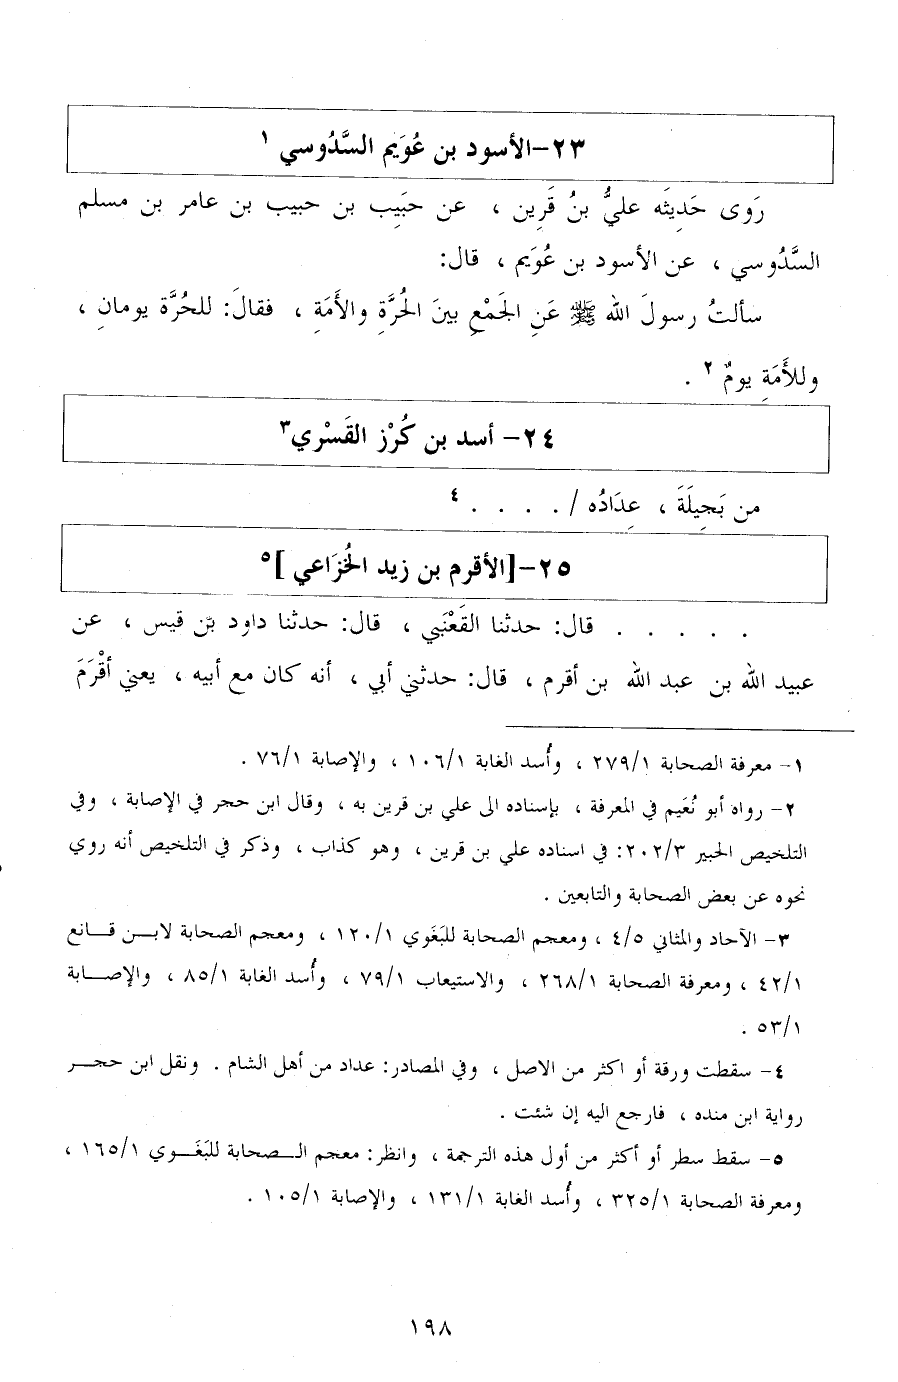 ٢٣-الأسود بن عُوَيم السَّدُوسي ١
رَوى حَدِيثَه عليُّ بنُ قَرِين ، عن حبَيِب بن حبيب بن عامر بن مسلم
السَّدُوسي ، عن الأسود بن عُوَيِم ، قال:
سألتُ رسولَ الله ﷺ عَنِ الجَمْعِ بينَ الحُرَّةِ والأَمَةِ ، فقالَ: للحُرَّة يومانِ ،
وللأَمَةِ يومٌ ٢ .
٢٤- أسد بن كُرْز القَسْري٣
من بَجِيلَةَ ، عِدَادُه / . . . . ٤
٢٥-[الأقرم بن زيد الخُزَاعي ]٥
. . . . . قال: حدثنا القَعْنَبي ، قال: حدثنا داود بن قيس ، عن
عبيد الله بن عبد الله بن أقرم ، قال: حدثني أبي ، أنه كان مع أبيه ، يعني أقْرَمَ
١- معرفة الصحابة ٢٧٩/١ ، وأُسد الغابة ١٠٦/١ ، والإصابة ٧٦/١ .
٢- رواه أبو نُعَيم في المعرفة ، بإسناده الى علي بن قرين به ، وقال ابن حجر في الإصابة ، وفي
التلخيص الحبير ٢٠٢/٣: في اسناده علي بن قرين ، وهو كذاب ، وذكر في التلخيص أنه روي
نحوه عن بعض الصحابة والتابعين .
٣- الآحاد والمثاني ٤/٥ ، ومعجم الصحابة للبَغَوي ١٢٠/١ ، ومعجم الصحابة لابن قانع
٤٢/١ ، ومعرفة الصحابة ٢٦٨/١ ، والاستيعاب ٧٩/١ ، وأُسد الغابة ٨٥/١ ، والإصابة
٥٣/١ .
٤- سقطت ورقة أو اكثر من الاصل ، وفي المصادر: عداد من أهل الشام . ونقل ابن حجر
رواية ابن منده ، فارجع اليه إن شئت .
٥- سقط سطر أو أكثر من أول هذه الترجمة ، وانظر: معجم الصحابة للبَغَوي ١٦٥/١ ،
ومعرفة الصحابة ٣٢٥/١ ، وأُسد الغابة ١٣١/١ ، والإصابة ١٠٥/١ .
١٩٨